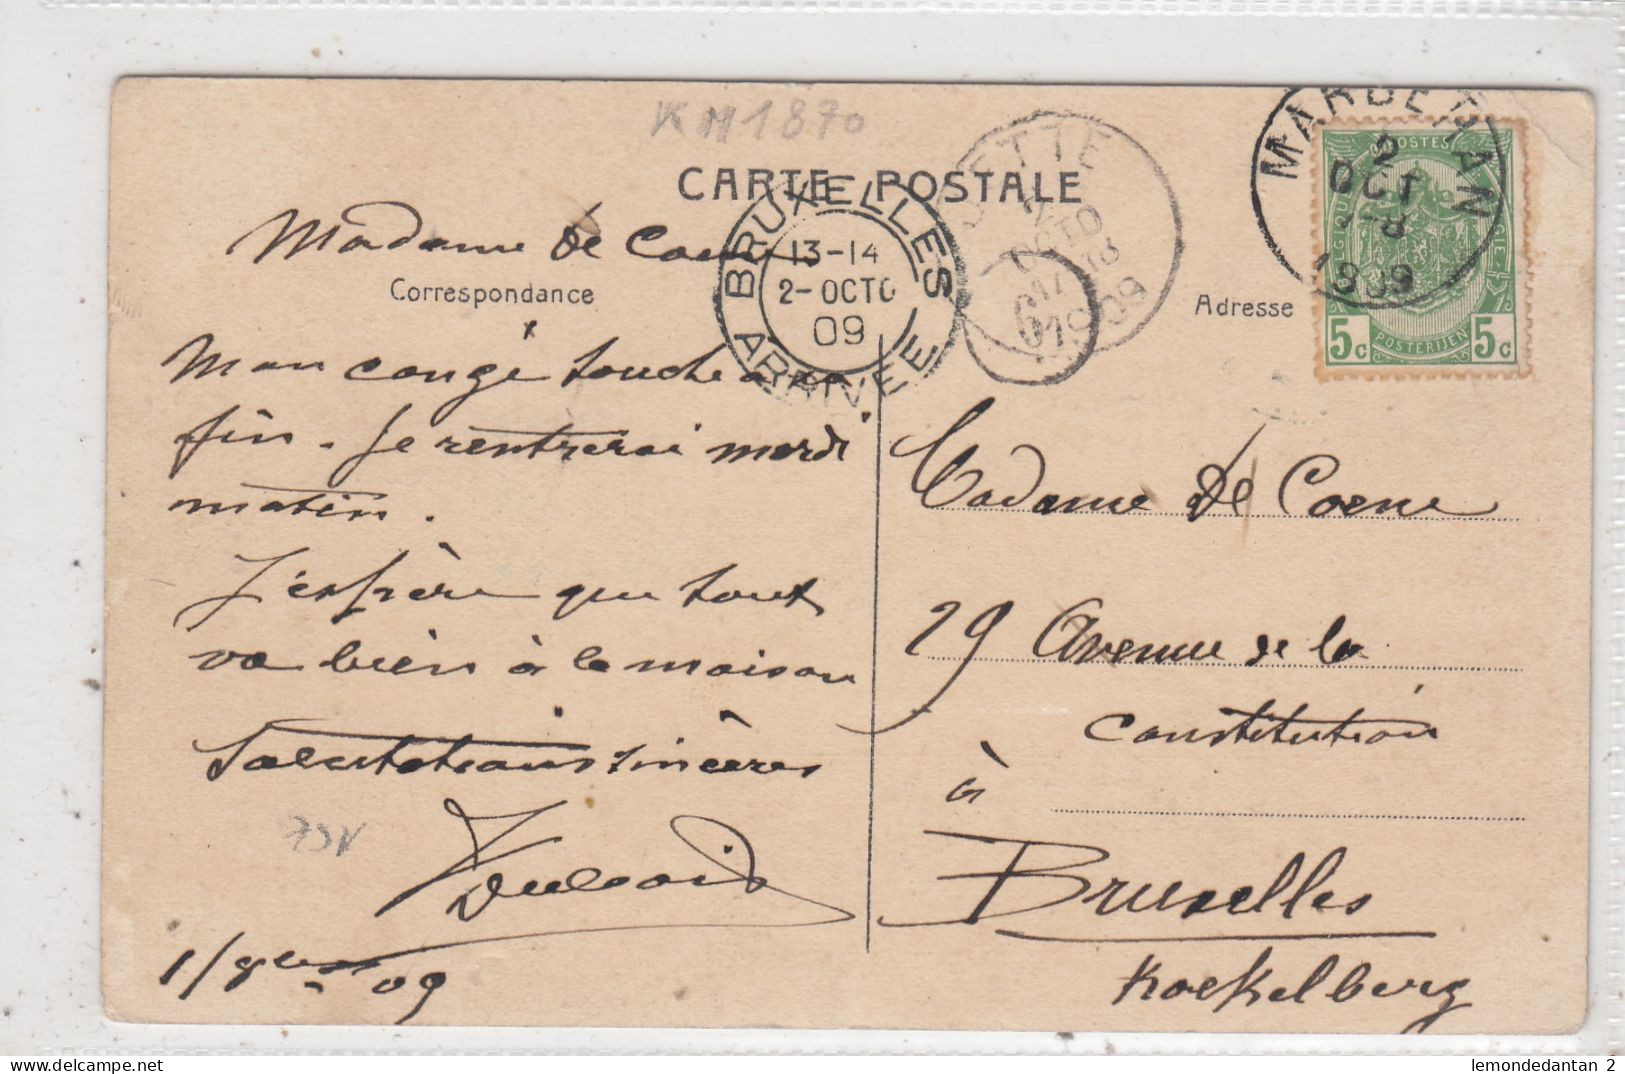 KM1870
CARTE POSTALE
Correspondance
Adresse
BRUXELLES
13-14
2-OCTO
09
ARRIVEE
ETTE
OCTO
1909
6
MARBEHAN
2
OCT
1909
POSTES
5c
5c
POSTERIJEN
Madame de Coene
Mon congé touche à sa
fin. Je rentrerai mardi
matin.
J'espère que tout
va bien à la maison
Salutations sincères
1/8bre 09
Madame De Coene
29 Avenue de la
Constitution
à
Bruxelles
Koekelberg
lemondedantan 2